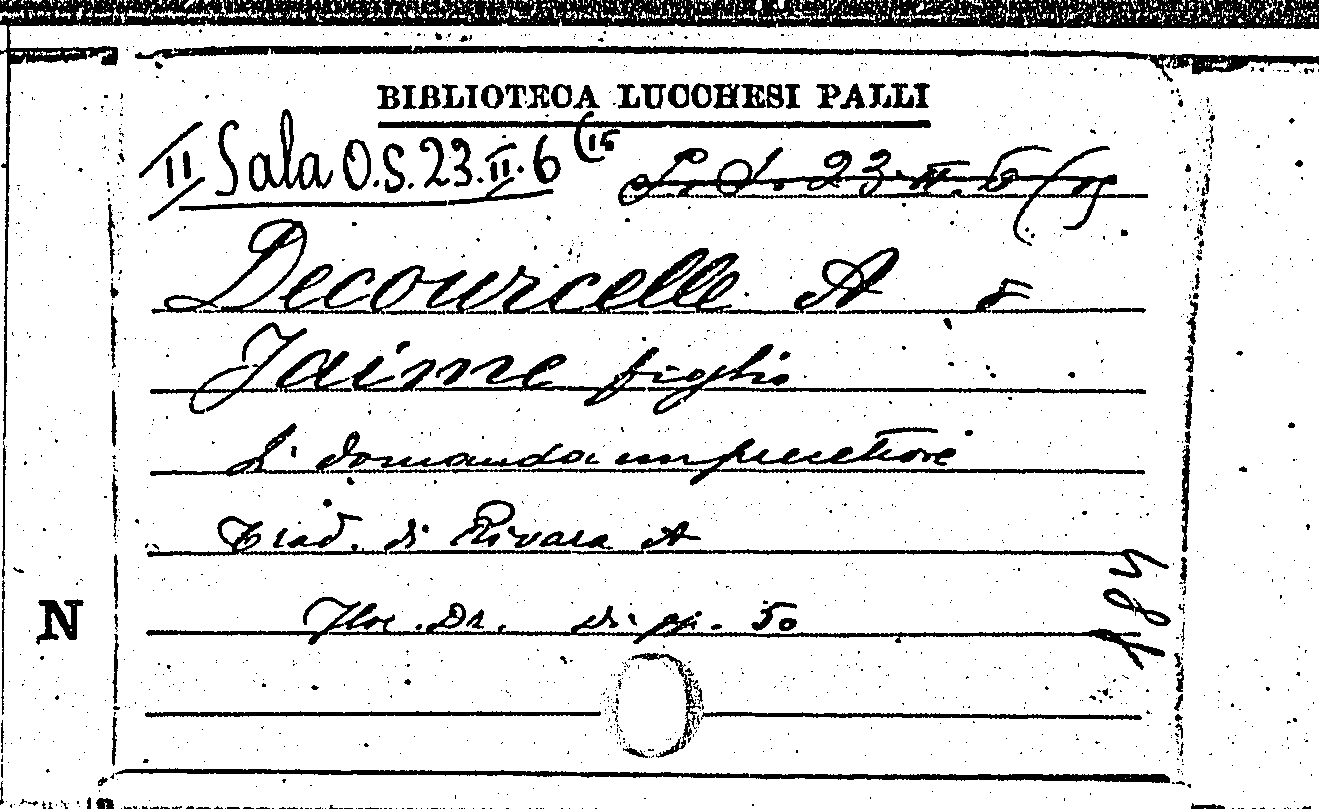 BIBLIOTECA LUCCHESI PALLI
II Sala O.S. 23. II. 6 (15 L. I. 23. II. 6 (15
Decourcelle A e
Jaime figlio
Si domanda un precettore
Trad. di Rivara A
Flor. Dr. di pp. 50
184
N